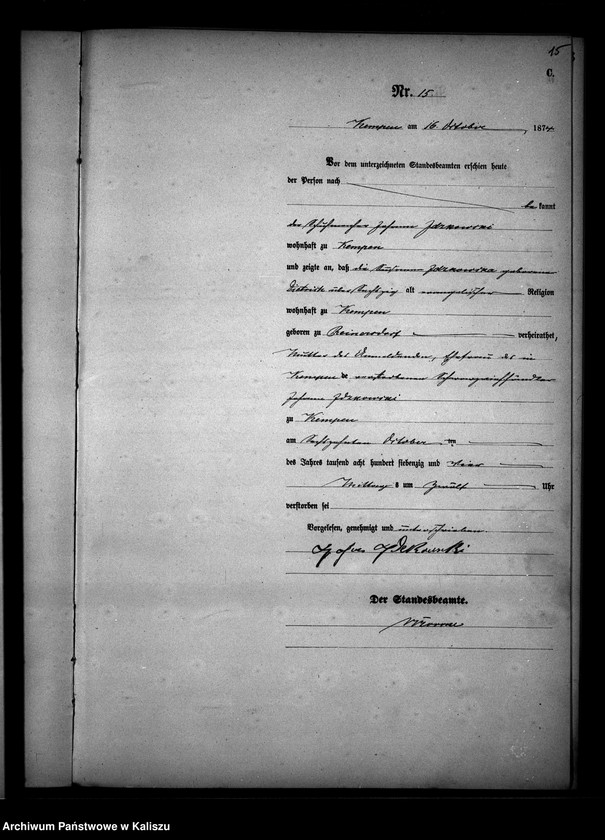 15
C.
Nr. 15
Kempen am 16 October, 1874
Vor dem unterzeichneten Standesbeamten erschien heute
der Person nach
be kannt
der Schuhmacher Johann Idzkowski
wohnhaft zu Kempen
und zeigte an, daß die Susanna Idzkowska geborene
alt evangelischer Religion
wohnhaft zu Kempen
geboren zu Reinersdorf verheirathet,
Mutter des Anmeldenden, Ehefrau des in
Kempen verstorbenen
Johann Idzkowski
zu Kempen
am October
des Jahres tausend acht hundert siebenzig und vier
Mittags um zwölf Uhr
verstorben sei
Vorgelesen, genehmigt und unterschrieben
Idzkowski
Der Standesbeamte.
Archiwum Państwowe w Kaliszu